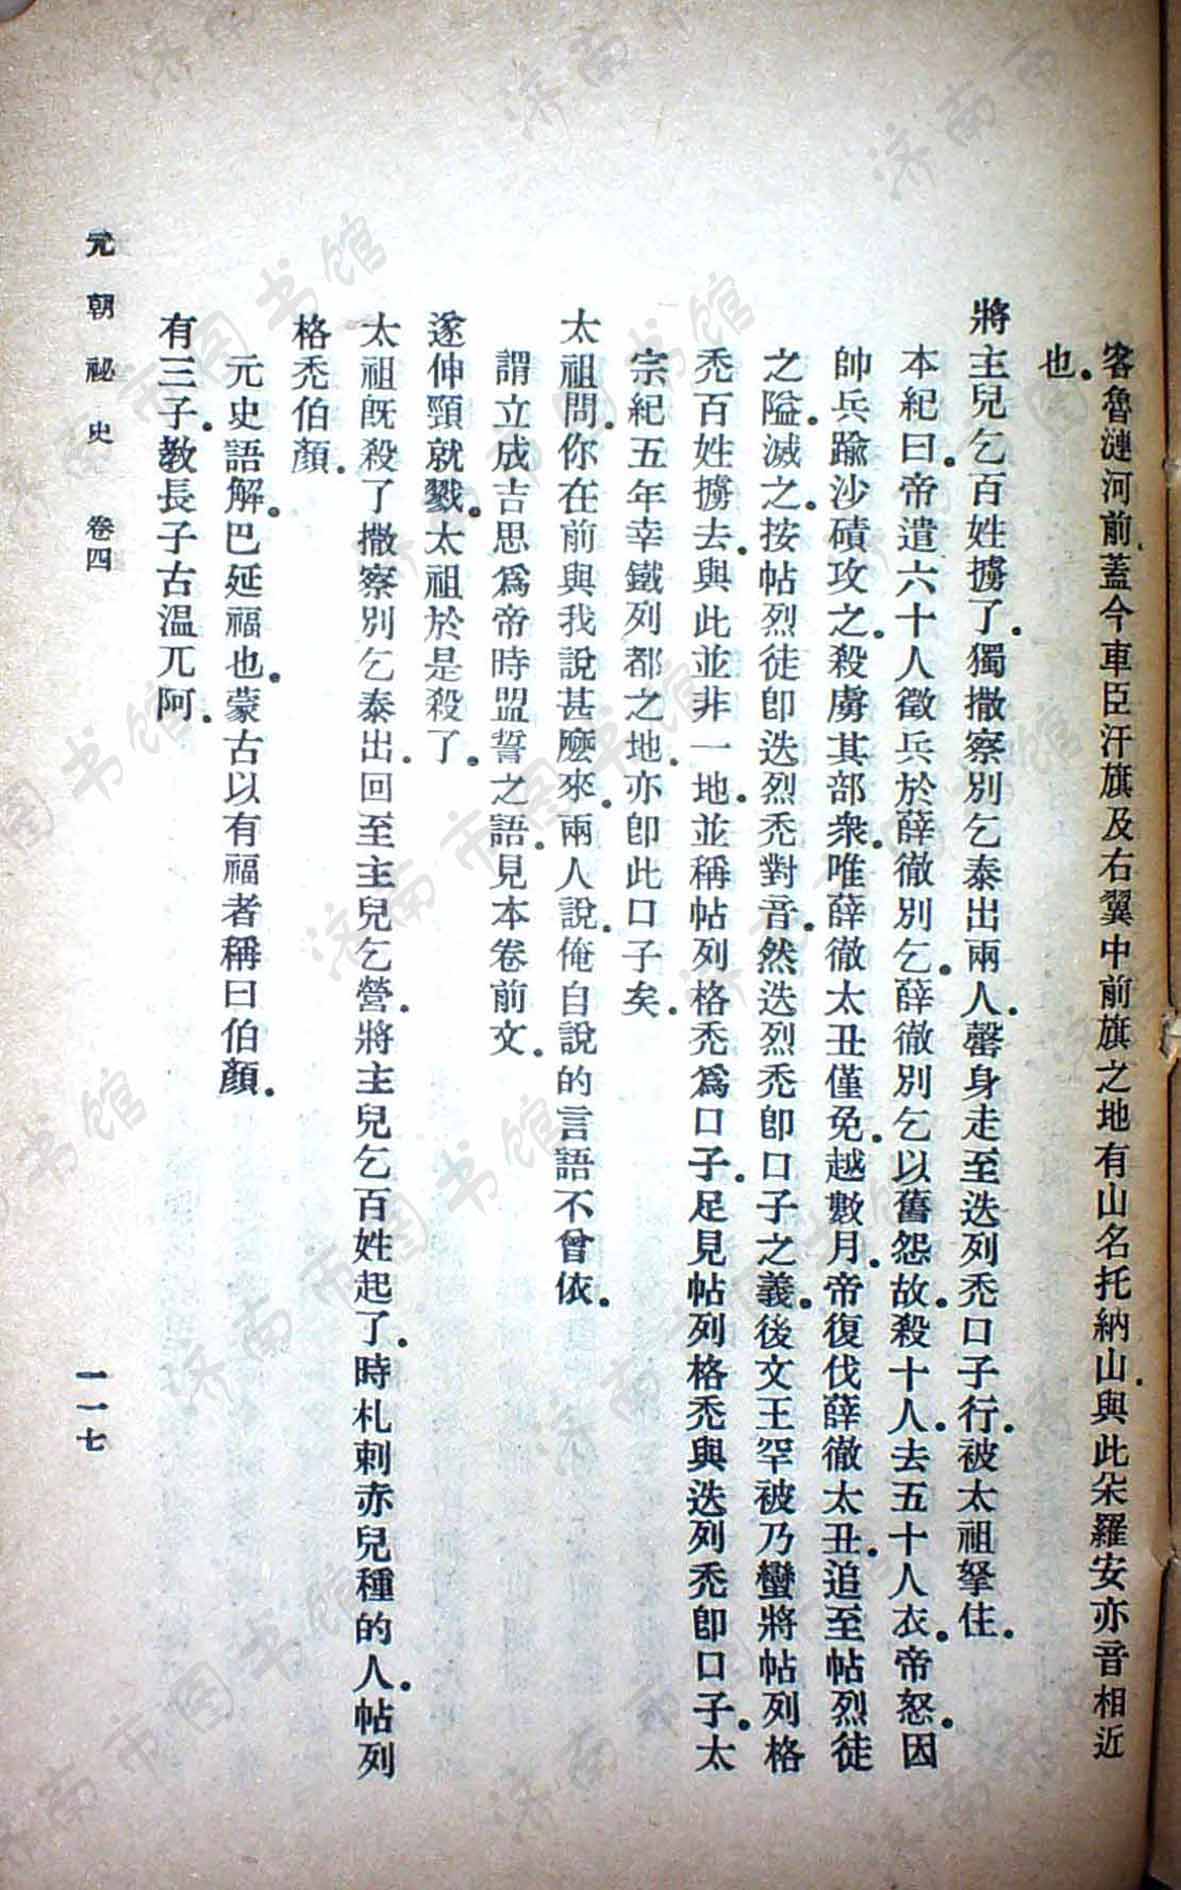 客魯漣河前蓋今車臣汗旗及右翼中前旗之地有山名托納山與此朶羅安亦音相近
也。
將主兒乞百姓擄了。獨撒察別乞泰出兩人。罄身走至迭列禿口子行。被太祖拏住。
本紀曰。帝遣六十人徵兵於薛徹別乞。薛徹別乞以舊怨故。殺十人。去五十人衣。帝怒。因
帥兵踰沙磧攻之。殺虜其部衆。唯薛徹太丑僅免。越數月。帝復伐薛徹太丑。追至帖烈徒
之隘。滅之。按帖烈徒卽迭烈禿對音。然迭烈禿卽口子之義。後文王罕被乃蠻將帖列格
禿百姓擄去。與此並非一地。並稱帖列格禿爲口子。足見帖列格禿與迭列禿卽口子。太
宗紀五年幸鐵列都之地。亦卽此口子矣。
太祖問。你在前與我說甚麼來。兩人說。俺自說的言語不曾依。
謂立成吉思爲帝時盟誓之語。見本卷前文。
遂伸頸就戮。太祖於是殺了。
太祖旣殺了撒察別乞泰出。回至主兒乞營。將主兒乞百姓起了。時札剌亦兒種的人。帖列
格禿伯顏。
元史語解。巴延福也。蒙古以有福者稱曰伯顏。
有三子。敎長子古溫兀阿。
元朝祕史 卷四
一一七
济南市图书馆